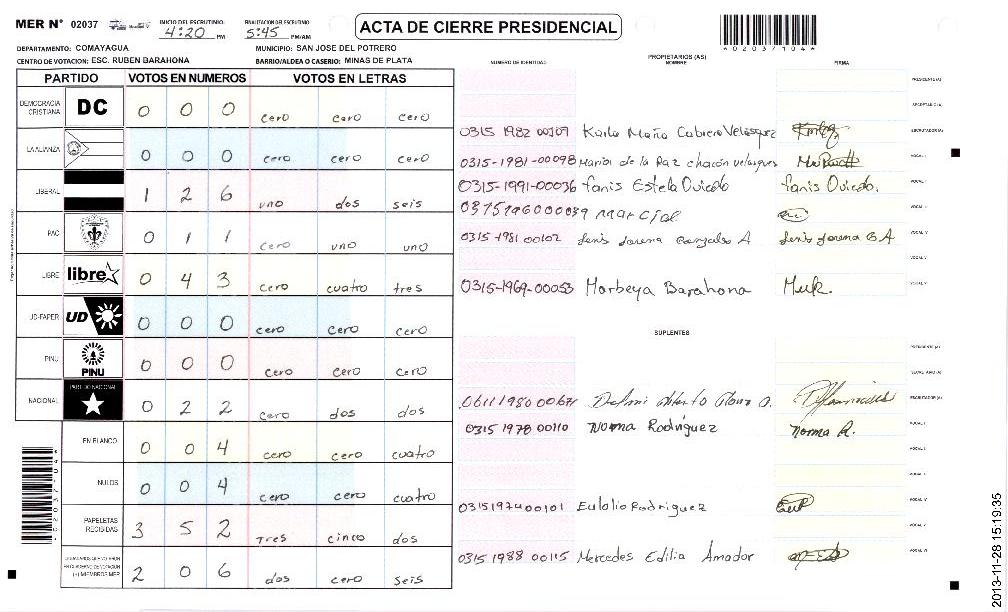 MER Nº 02037 INICIO DEL ESCRUTINIO 4:20 PM FINALIZACION DEL ESCRUTINIO 5:45 PM/AM
ACTA DE CIERRE PRESIDENCIAL
DEPARTAMENTO: COMAYAGUA MUNICIPIO: SAN JOSE DEL POTRERO
CENTRO DE VOTACION: ESC. RUBEN BARAHONA BARRIO/ALDEA O CASERIO: MINAS DE PLATA
PARTIDO VOTOS EN NUMEROS VOTOS EN LETRAS
DEMOCRACIA CRISTIANA DC 0 0 0 cero cero cero
LA ALIANZA 0 0 0 cero cero cero
LIBERAL 1 2 6 uno dos seis
PAC 0 1 1 cero uno uno
LIBRE libre 0 4 3 cero cuatro tres
UD-FAPER UD 0 0 0 cero cero cero
PINU PINU 0 0 0 cero cero cero
NACIONAL PARTIDO NACIONAL 0 2 2 cero dos dos
EN BLANCO 0 0 4 cero cero cuatro
NULOS 0 0 4 cero cero cuatro
PAPELETAS RECIBIDAS 3 5 2 Tres cinco dos
(+) MIEMBROS MER 2 0 6 dos cero seis
*02037104*
NUMERO DE IDENTIDAD PROPIETARIOS (AS) NOMBRE FIRMA
PRESIDENTE (A)
SECRETARIO (A)
0315 1982 00107 Karla Maria Cabrera Velasquez ESCRUTADOR (A)
0315-1981-00098 Maria de la Paz chacón velasques VOCAL I
0315-1991-00036 Fanis Estela Oviedo Fanis Oviedo.
marcial
0315 1981 00102 Lenis Lorena Gonzales A Lenis Lorena G A
0315-1969-00053 Marbeya Barahona
SUPLENTES
PRESIDENTE (A)
SECRETARIO (A)
0611 1980 00671 ESCRUTADOR (A)
0315 1978 00110 Norma Rodriguez Norma R.
0315197400101 Eulalio Rodriguez
0315 1988 00115 Mercedes Edilia Amador
2013-11-28 15:19:35